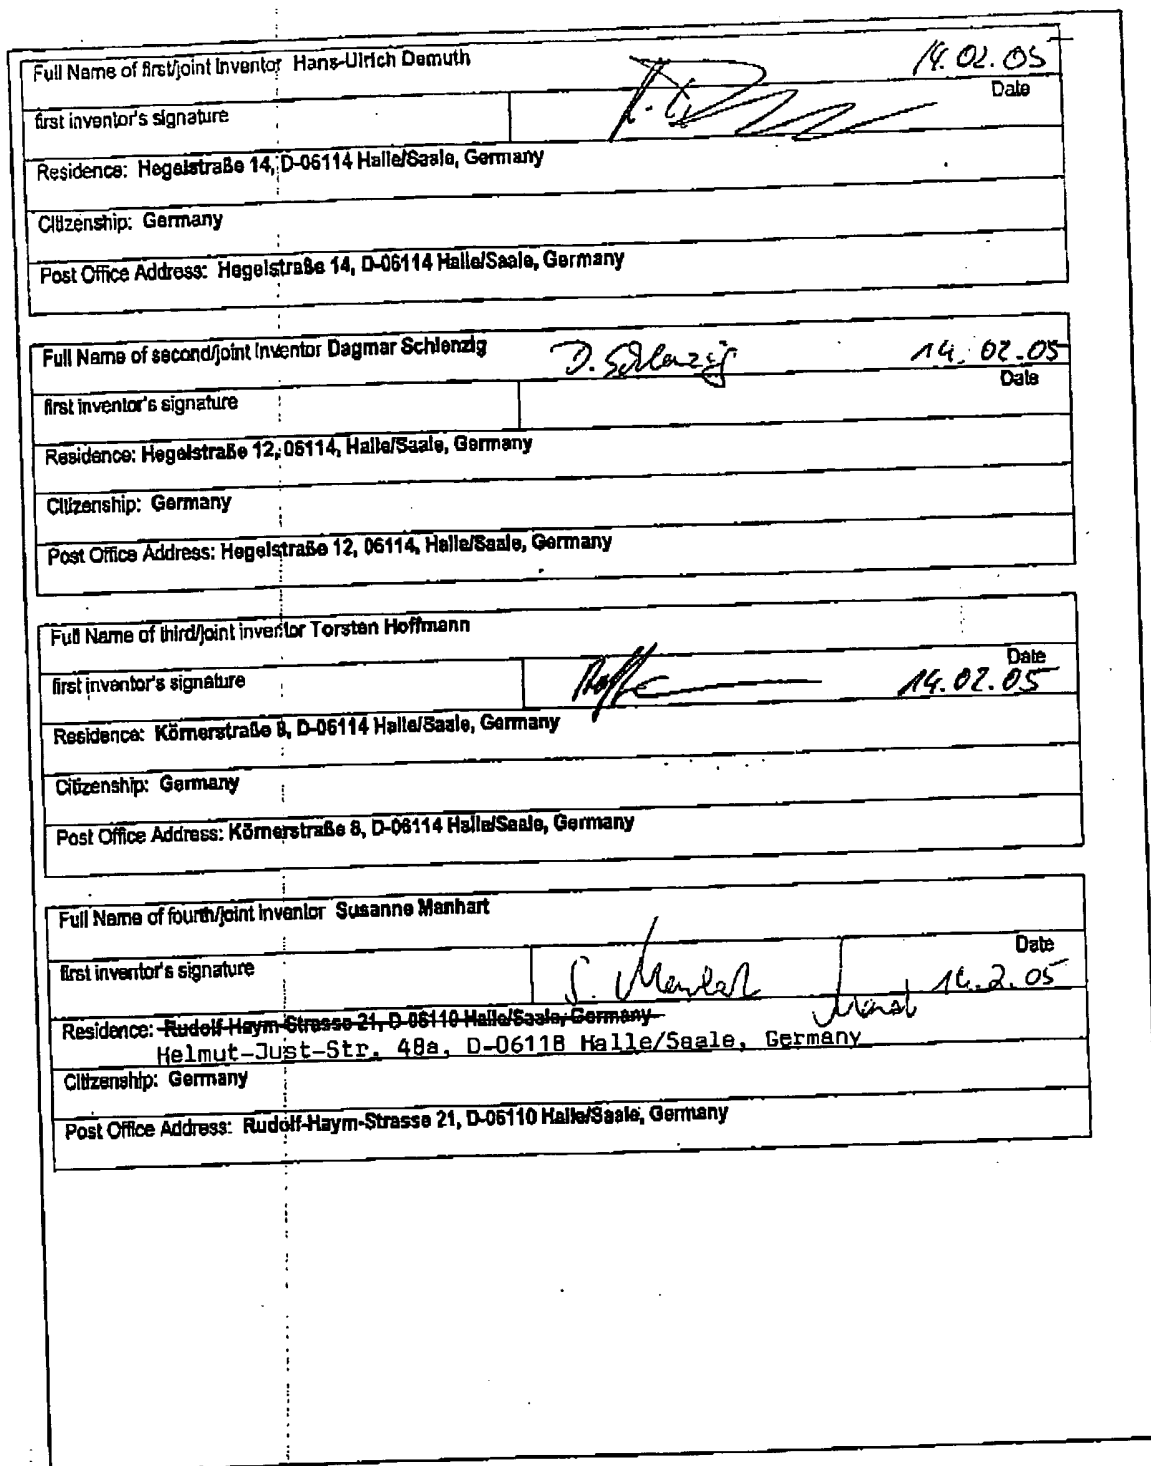 Full Name of first/joint inventor Hans-Ulrich Demuth 14.02.05
Date
first inventor's signature
Residence: Hegelstraße 14, D-06114 Halle/Saale, Germany
Citizenship: Germany
Post Office Address: Hegelstraße 14, D-06114 Halle/Saale, Germany
Full Name of second/joint inventor Dagmar Schlenzig D. Schlenzig 14.02.05
Date
first inventor's signature
Residence: Hegelstraße 12, 06114, Halle/Saale, Germany
Citizenship: Germany
Post Office Address: Hegelstraße 12, 06114, Halle/Saale, Germany
Full Name of third/joint inventor Torsten Hoffmann
Date
first inventor's signature 14.02.05
Residence: Körnerstraße 8, D-06114 Halle/Saale, Germany
Citizenship: Germany
Post Office Address: Körnerstraße 8, D-06114 Halle/Saale, Germany
Full Name of fourth/joint inventor Susanne Manhart
Date
first inventor's signature S. Manhart 14.2.05
Residence: Rudolf-Haym-Strasse 21, D-06110 Halle/Saale, Germany
Helmut-Just-Str. 48a, D-06118 Halle/Saale, Germany
Citizenship: Germany
Post Office Address: Rudolf-Haym-Strasse 21, D-06110 Halle/Saale, Germany